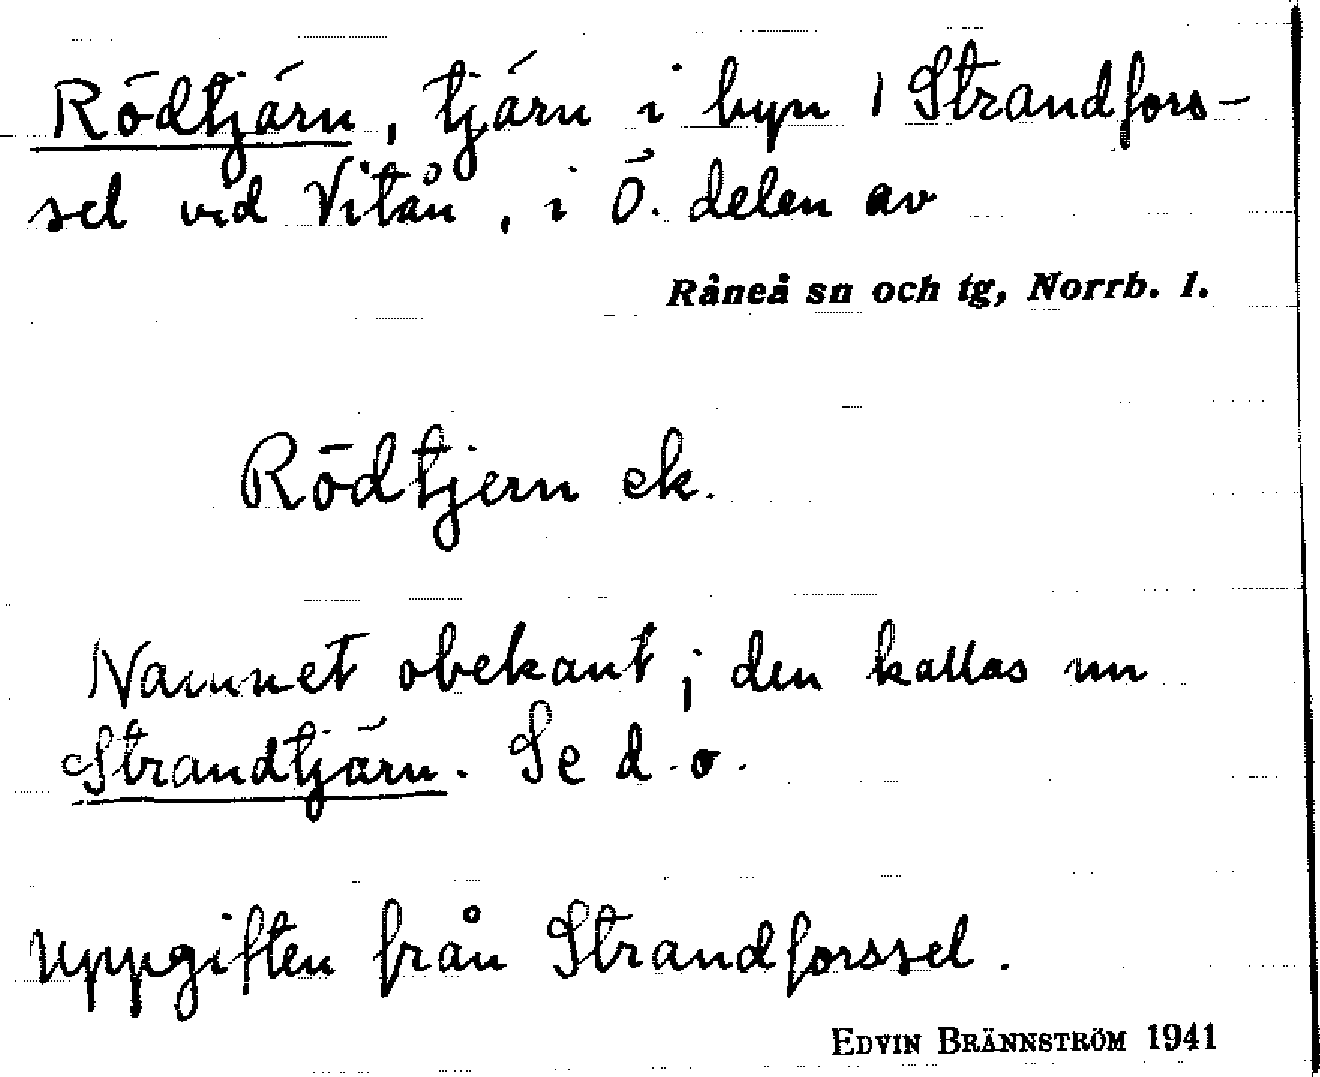 Rödtjärn, tjärn i byn Strandfors-
sel vid Vitån, i Ö. delen av
Råneå sn och tg, Norrb. l.
Rödtjern ek.
Namnet obekant; den kallas nu
Strandtjärn. Se d.o.
Uppgiften från Strandforssel.
EDVIN BRÄNNSTRÖM 1941